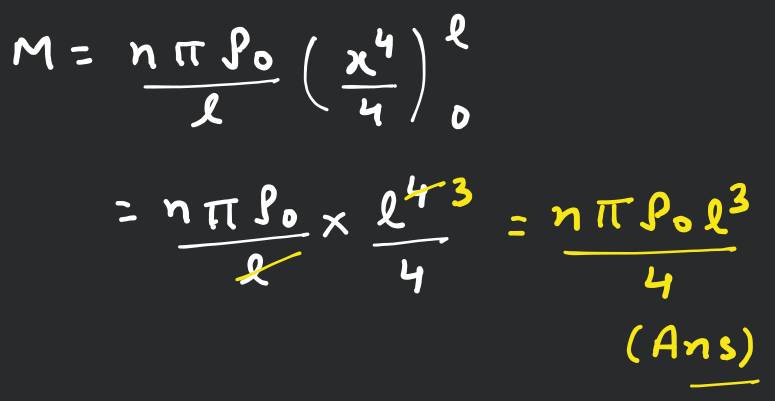 M = nπρ₀/l (x⁴/4)₀ˡ
= nπρ₀/l × l⁴ 3/4 = nπρ₀l³/4
(Ans)